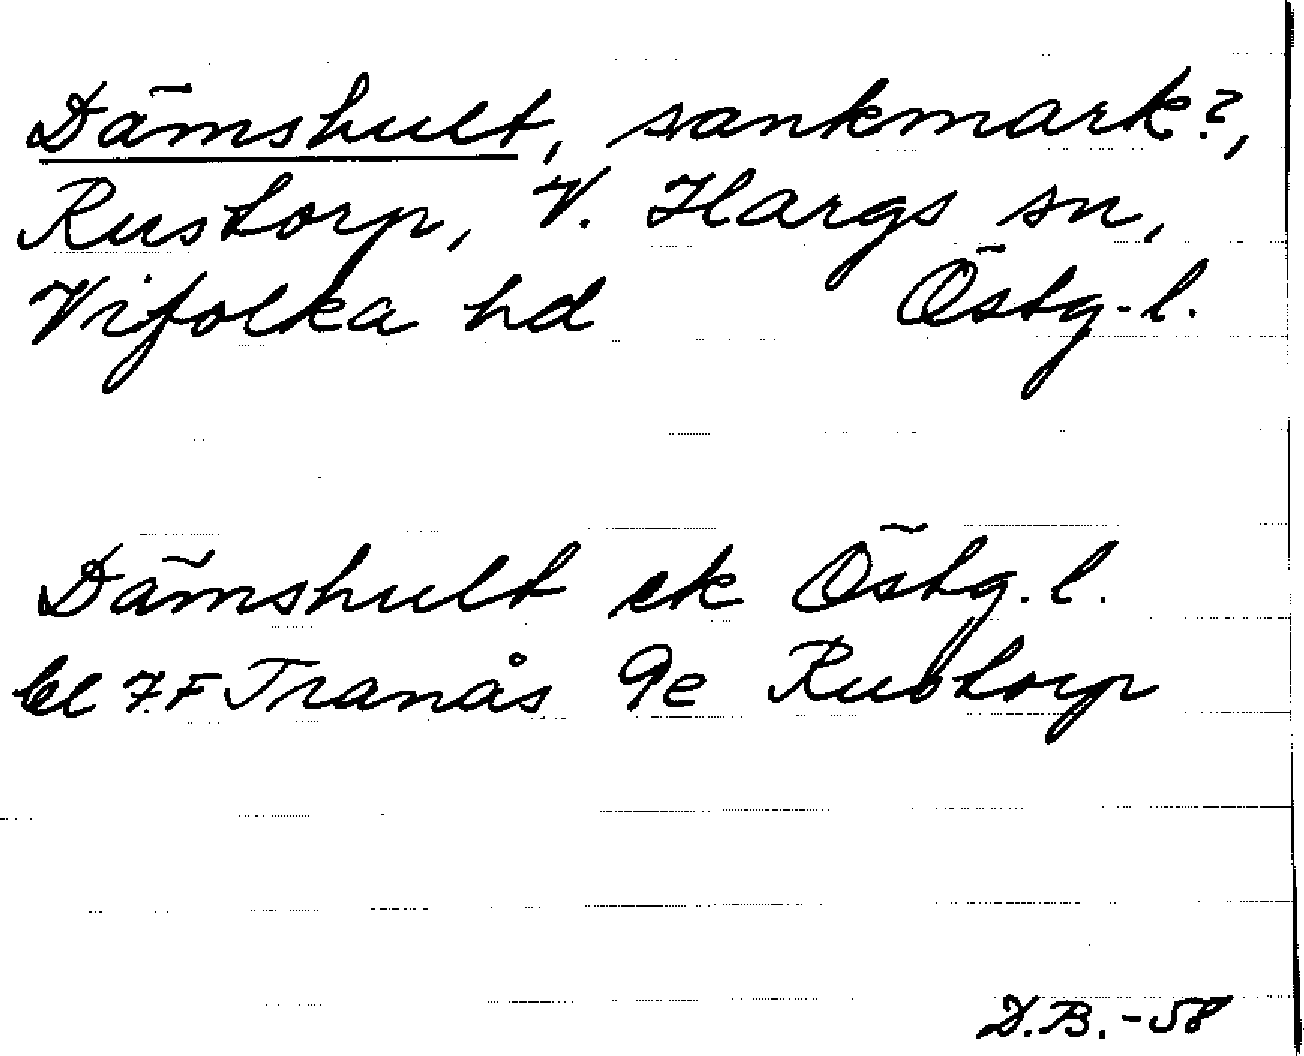 Dämshult, sankmark?,
Rustorp, V. Hargs sn,
Vifolka hd Östg.l.
Dämshult ek Östg.l.
bl 7.F Tranås 9e Rustorp
D.B.-58